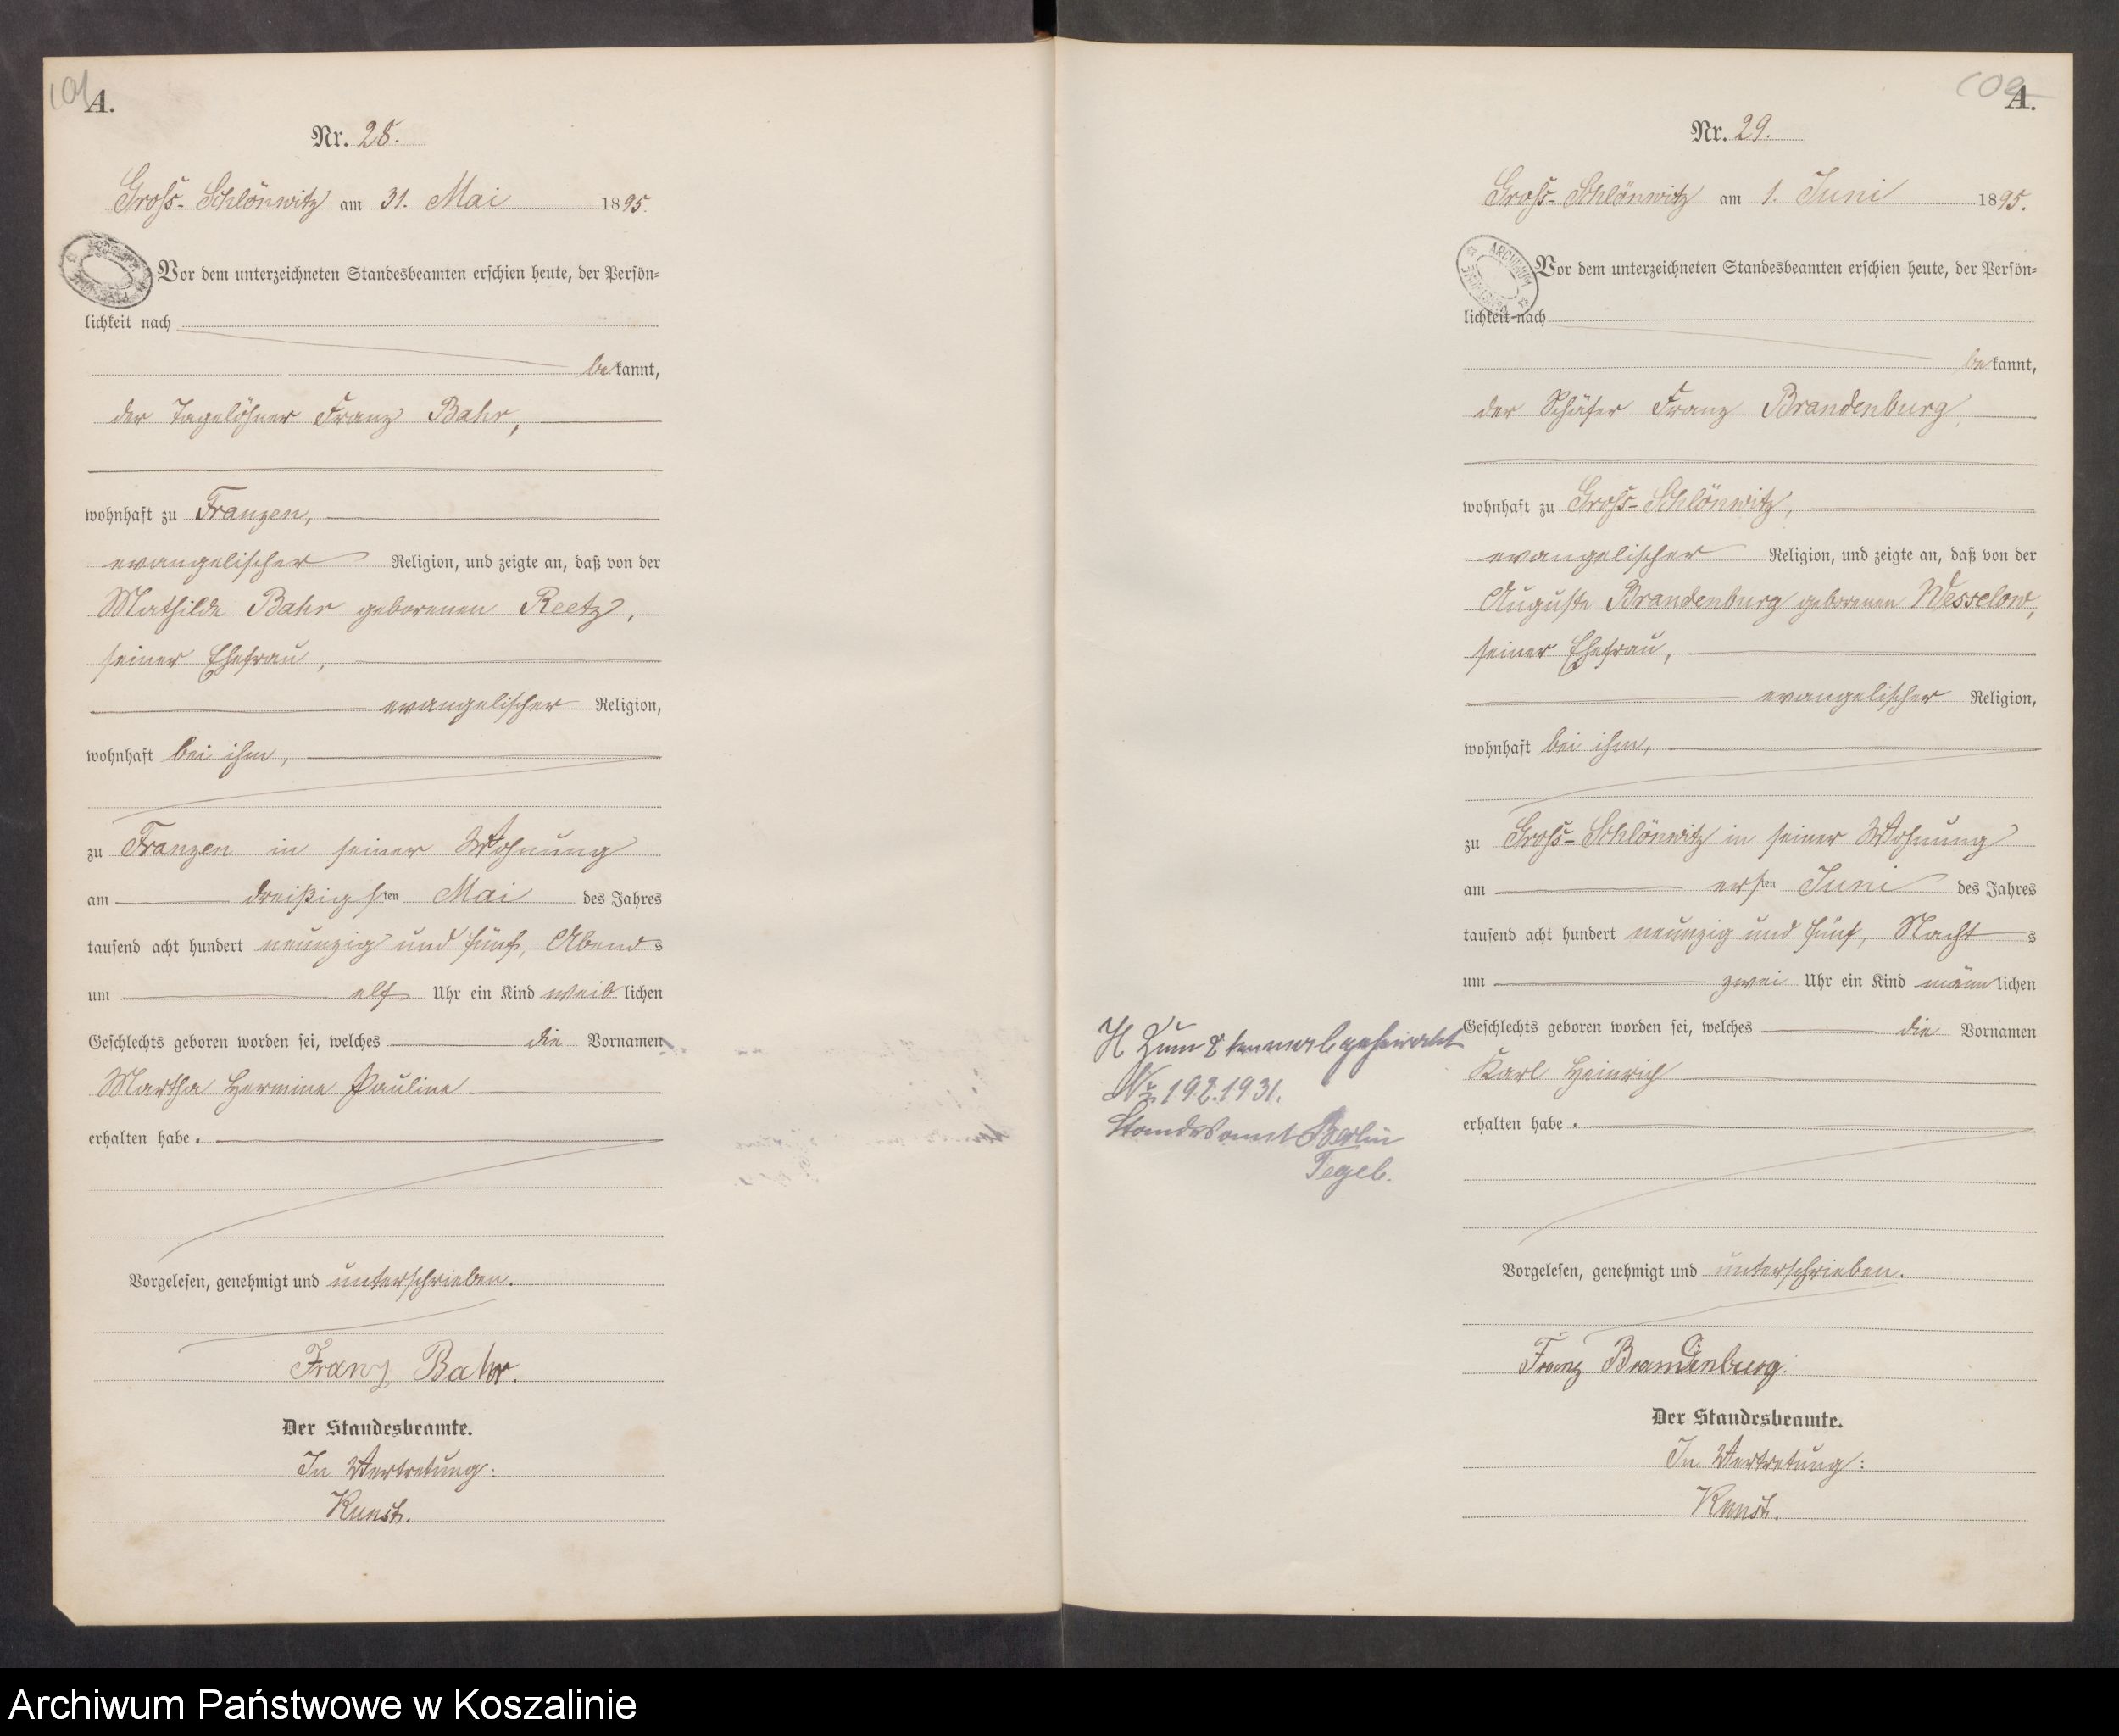 101
A.
Nr. 28.
Groß-Schlönwitz am 31. Mai 1895.
Vor dem unterzeichneten Standesbeamten erschien heute, der Persön-
lichkeit nach
bekannt,
der Tagelöhner Franz Bahr,
wohnhaft zu Franzen,
evangelischer Religion, und zeigte an, daß von der
Mathilde Bahr geborenen Reetz,
seiner Ehefrau,
evangelischer Religion,
wohnhaft bei ihm,
zu Franzen in seiner Wohnung
am dreißigsten Mai des Jahres
tausend acht hundert neunzig und fünf, Abends
um elf Uhr ein Kind weiblichen
Geschlechts geboren worden sei, welches die Vornamen
Martha Hermine Pauline
erhalten habe.
Vorgelesen, genehmigt und unterschrieben.
Franz Bahr.
Der Standesbeamte.
In Vertretung:
Kunst.
102
A.
Nr. 29.
Groß-Schlönwitz am 1. Juni 1895.
ARCHIWUM
Vor dem unterzeichneten Standesbeamten erschien heute, der Persön-
lichkeit nach
bekannt,
der Schäfer Franz Brandenburg,
wohnhaft zu Groß-Schlönwitz,
evangelischer Religion, und zeigte an, daß von der
Auguste Brandenburg geborenen Wesselow,
seiner Ehefrau,
evangelischer Religion,
wohnhaft bei ihm,
zu Groß-Schlönwitz in seiner Wohnung
am ersten Juni des Jahres
tausend acht hundert neunzig und fünf, Nachts
um zwei Uhr ein Kind männlichen
Geschlechts geboren worden sei, welches die Vornamen
Karl Heinrich
erhalten habe.
Vorgelesen, genehmigt und unterschrieben.
Franz Brandenburg.
Der Standesbeamte.
In Vertretung:
Kunst.
H Zum 2tenmal geheiratet
Nr. 192.1931.
Standesamt Berlin
Tegel.
Archiwum Państwowe w Koszalinie